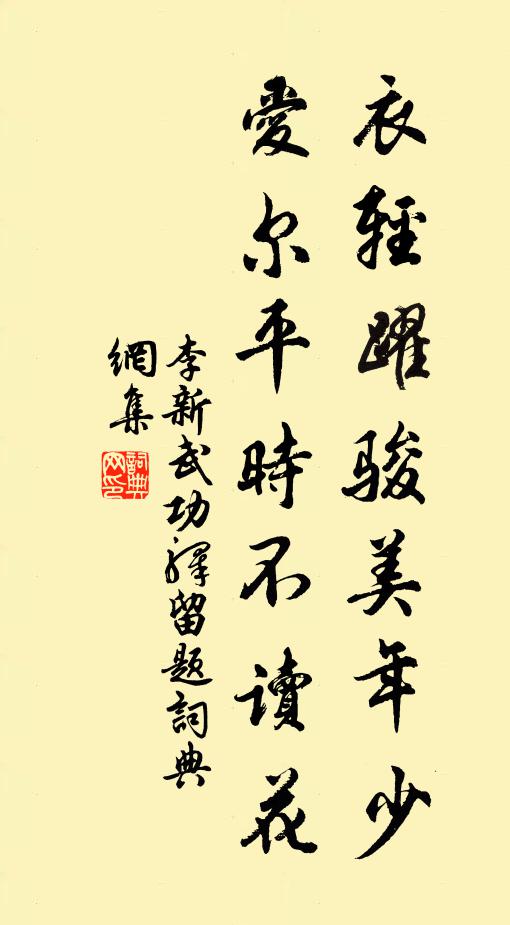 衣輕躍駿美年少
愛尔平時不讀花
李新武功驛留題詞典
網集
詞典
网印